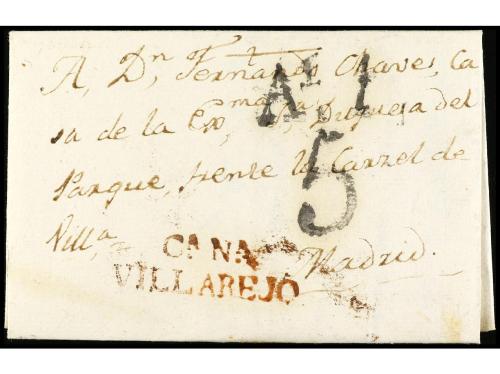 A, Dn, Fernando Chaves, Ca
sa de la Exma, Duquesa del
Parque, frente la Carzel de
Villa
Madrid.
5
CANA
VILLAREJO